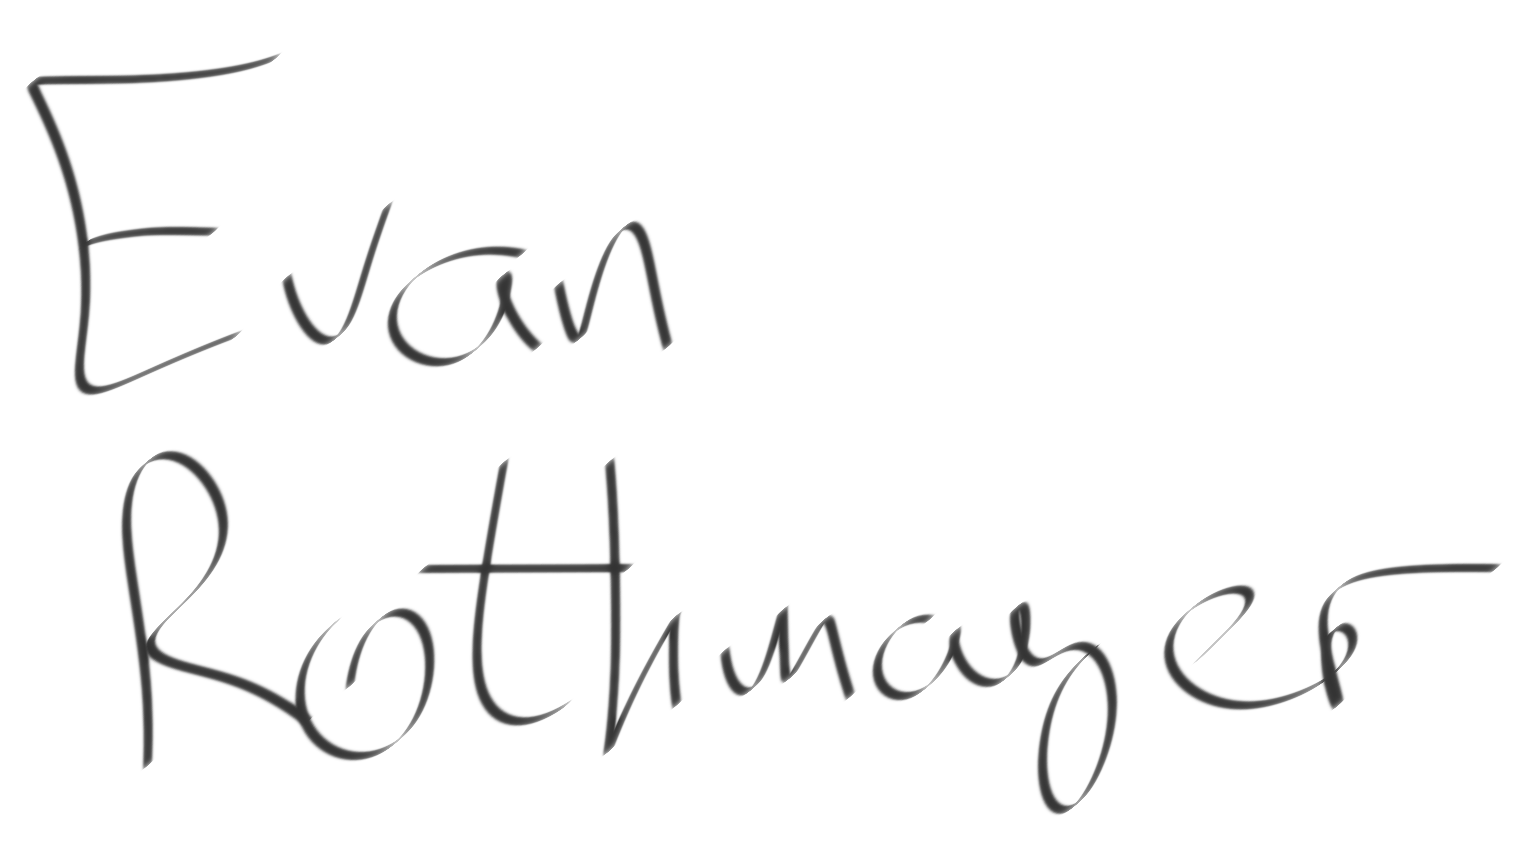 Evan
Rothmayer